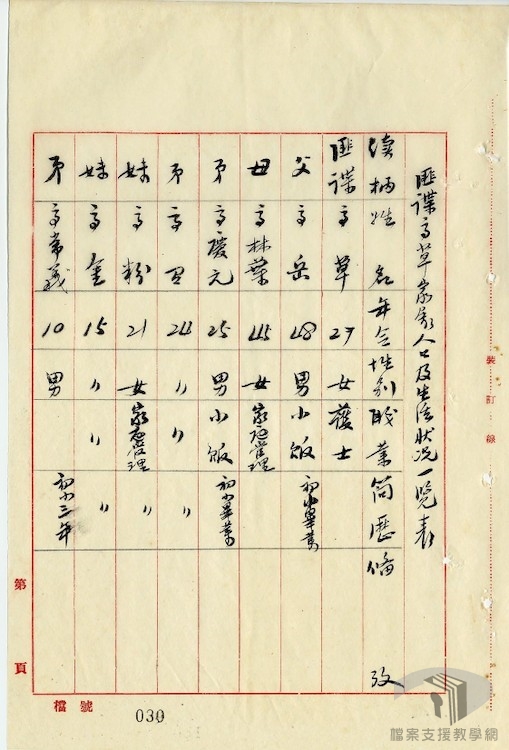 匪諜高草家屬人口及生活狀況一覽表
續柄 姓名 年令 性別 職業 簡歷 備攷
匪諜 高草 27 女 護士
父 高岳 48 男 小販 初小畢業
母 高林葉 45 女 家庭管理
弟 高慶元 25 男 小販 初小畢業
弟 高 24 〃 〃 〃
妹 高粉 21 女 家庭管理 〃
妹 高金 15 〃 〃 〃
弟 高常義 10 男 初小三年
裝訂線
第 頁
檔號
030
檔案支援教學網